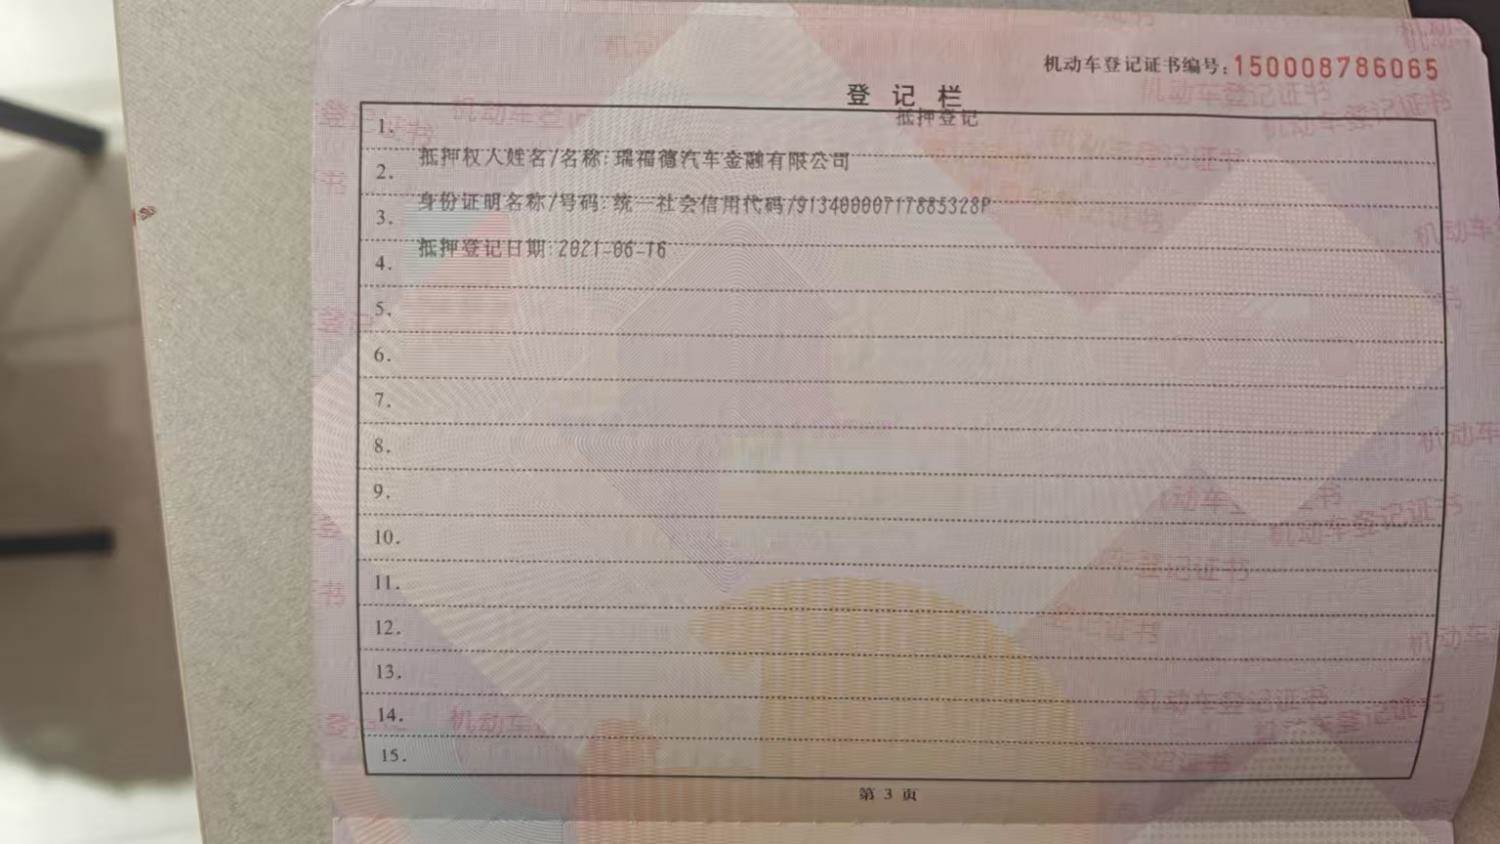 机动车登记证书编号:150008786065
登 记 栏
抵押登记
1.
抵押权人姓名/名称:瑞福德汽车金融有限公司
2.
身份证明名称/号码:统一社会信用代码/91340000717885328P
3.
抵押登记日期:2021-06-16
4.
5.
6.
7.
8.
9.
10.
11.
12.
13.
14.
15.
第 3 页